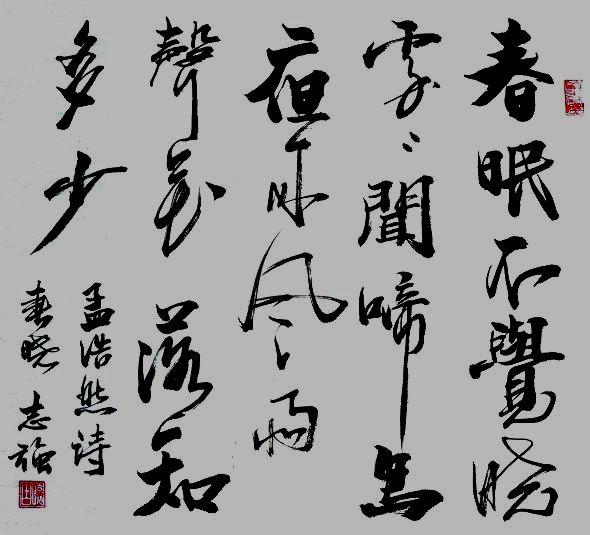 春眠不覺晓
處々聞啼鳥
夜来風雨
聲花落知
多少
孟浩然詩
春晓 志強